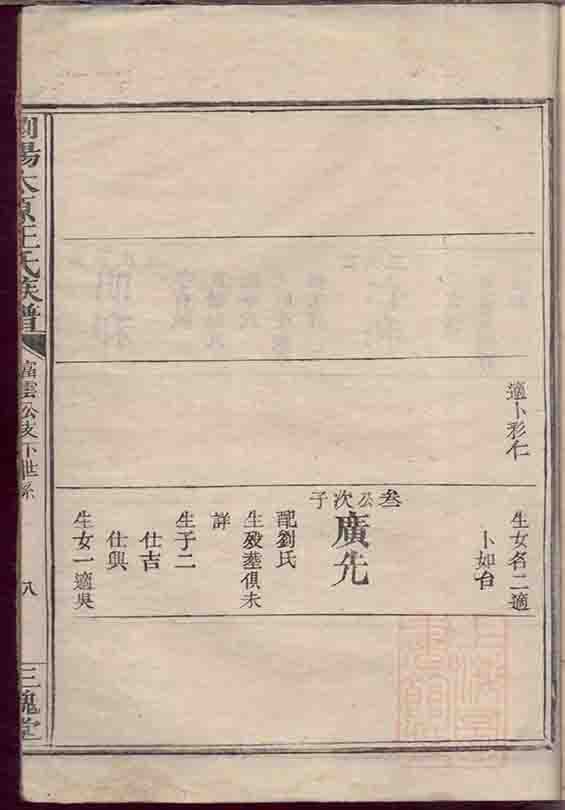 適卜彩仁
生女名二適
卜如台
叁公次子
廣先
配劉氏
生歿塟俱未
詳
生子二
仕吉
仕興
生女一適吳
瀏陽太原王氏族譜
富雲公支下世系
八
三槐堂